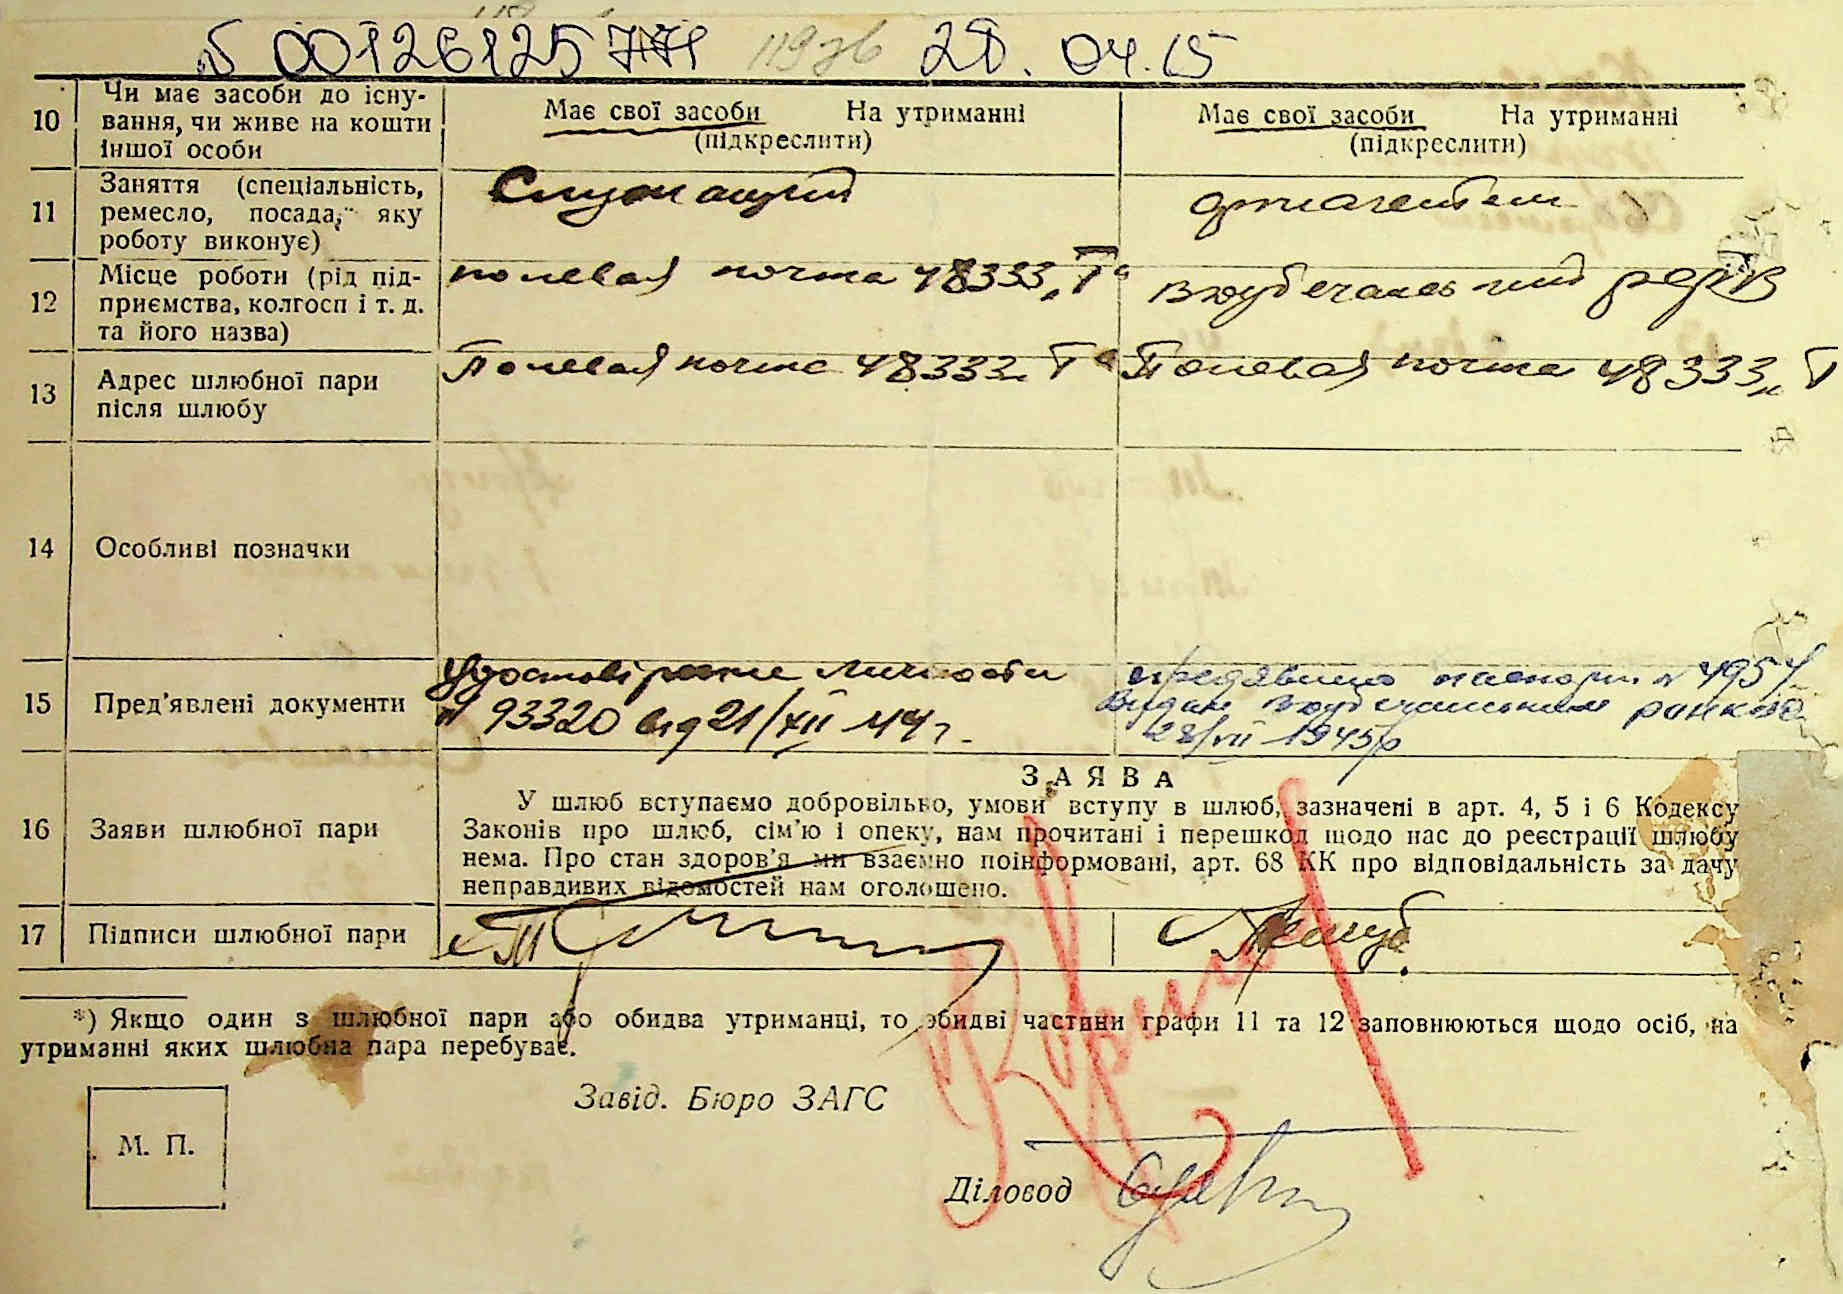 00126125771 1197в 28.04.15
10 Чи має засоби до існу-
вання, чи живе на кошти
іншої особи
Має свої засоби На утриманні
(підкреслити)
Має свої засоби На утриманні
(підкреслити)
11 Заняття (спеціальність,
ремесло, посада, яку
роботу виконує)
Служащий
12 Місце роботи (рід під-
приємства, колгосп і т. д.
та його назва)
полевая почта 48333 „Т“
13 Адрес шлюбної пари
після шлюбу
Полевая почта 48333 „Т“
Полевая почта 48333 „Т
14 Особливі позначки
15 Пред’явлені документи
Удостовірение личности
№ 93320 від 21/XII 44 г.
паспорт № 4957
видан
28/VII 1945р
16 Заяви шлюбної пари
ЗАЯВА
У шлюб вступаємо добровільно, умови вступу в шлюб, зазначені в арт. 4, 5 і 6 Кодексу
Законів про шлюб, сім’ю і опеку, нам прочитані і перешкод щодо нас до реєстрації шлюбу
нема. Про стан здоров’я ми взаємно поінформовані, арт. 68 КК про відповідальність за дачу
неправдивих відомостей нам оголошено.
17 Підписи шлюбної пари
*) Якщо один з шлюбної пари або обидва утриманці, то обидві частини графи 11 та 12 заповнюються щодо осіб, на
утриманні яких шлюбна пара перебуває.
Завід. Бюро ЗАГС
М. П.
Діловод